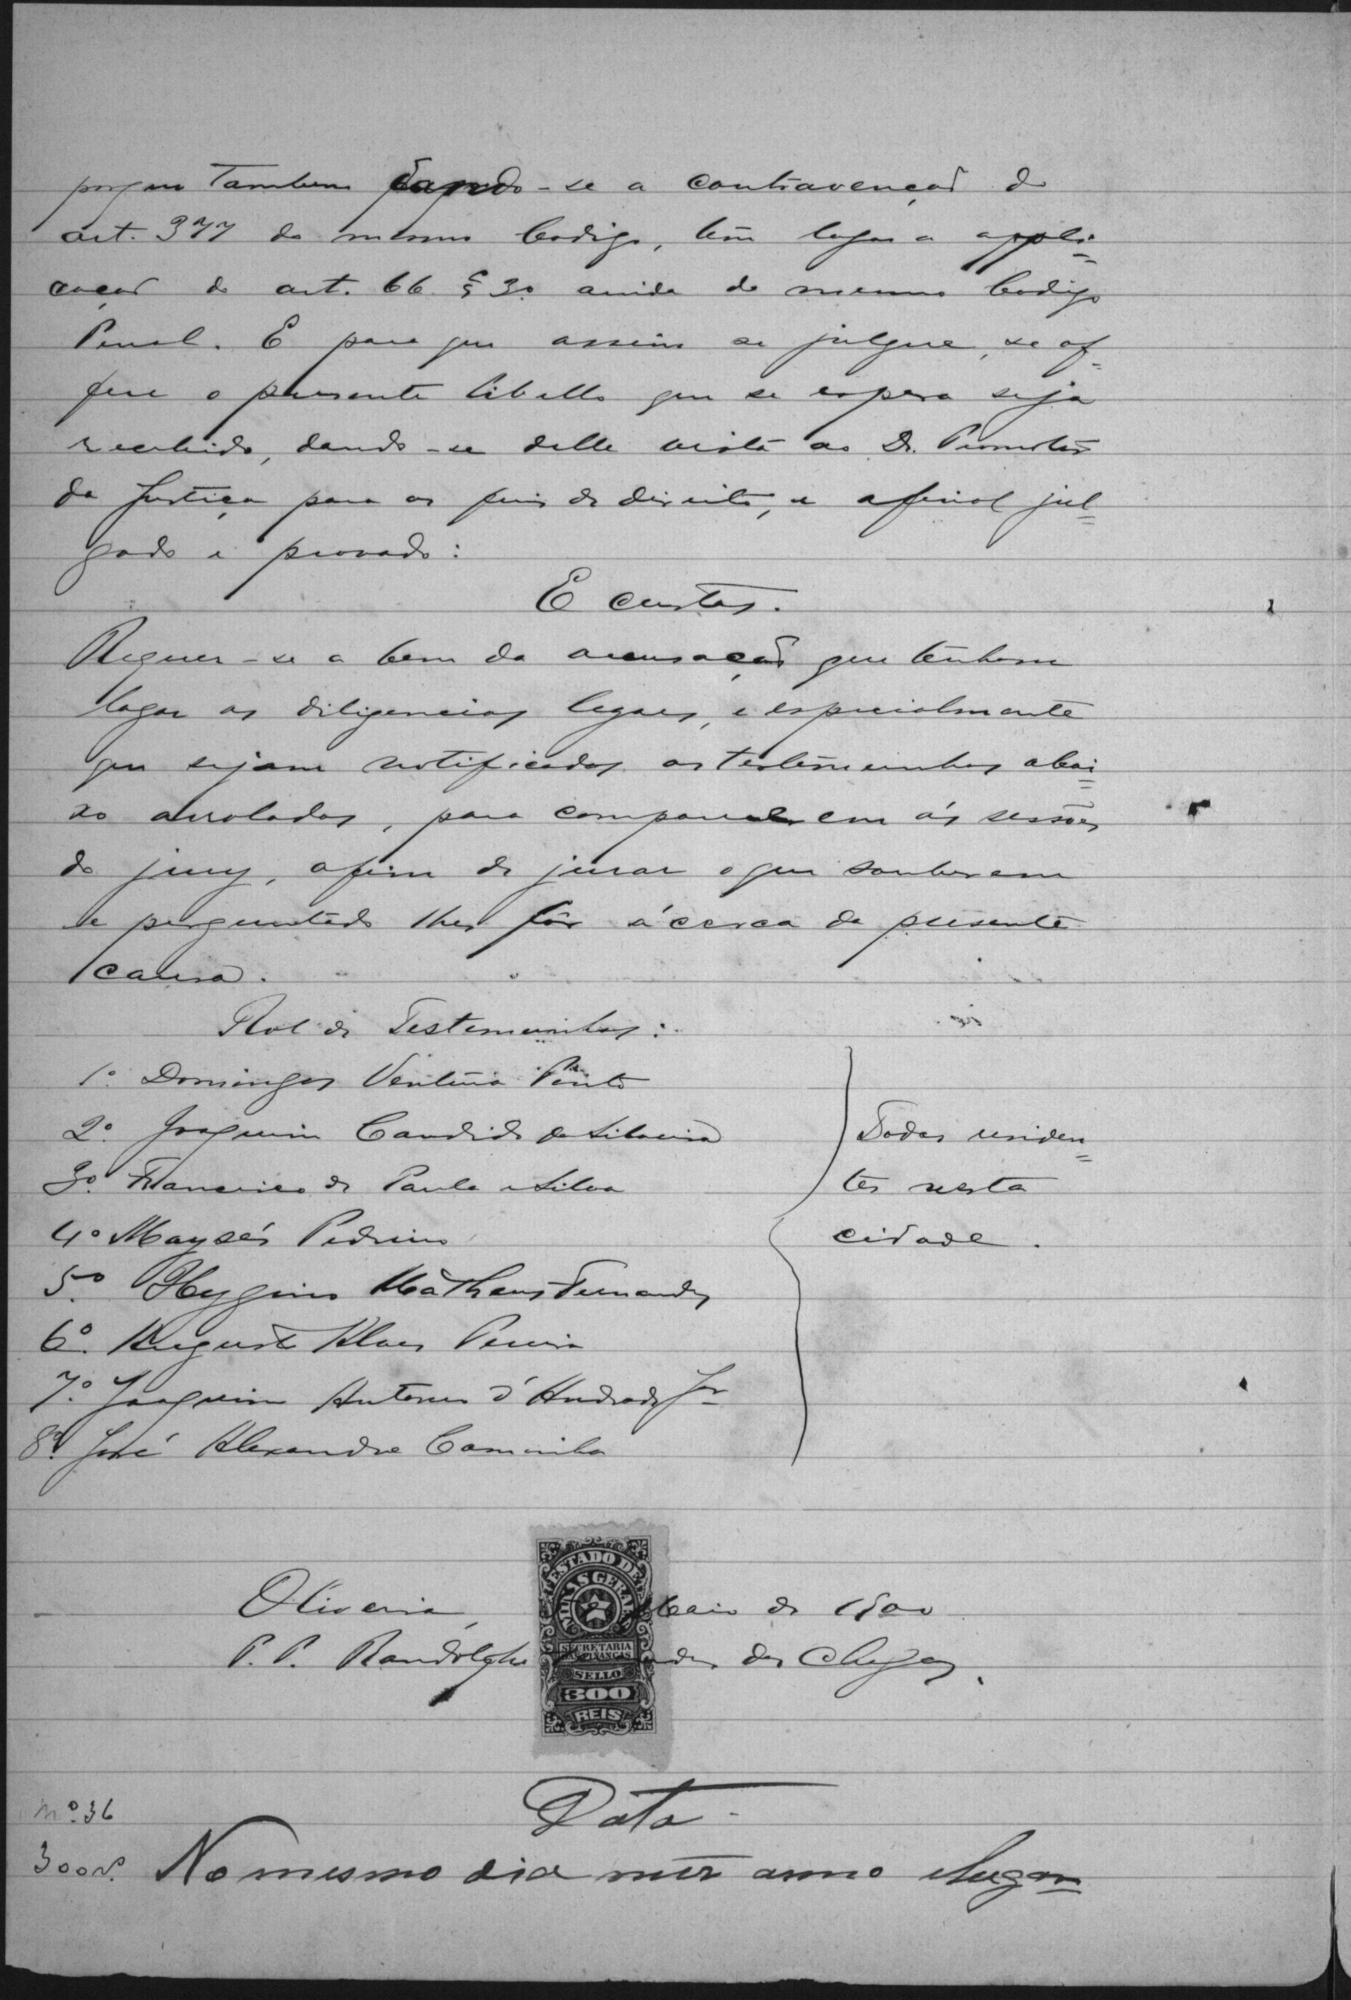 porque tambem dando-se a contravençaõ do
art. 377 do mesmo Codigo, tem logar a appli=
caçaõ do art. 66 § 3º ainda do mesmo Codigo
Penal. E para que assim se julgue, se of=
fere o presente libello que se espera seja
recebido, dando-se delle vista ao Dr. Promotor
da Justiça para os fins de direito, e afinal jul=
gado e provado:
E custas.
Requer-se a bem da accusaçaõ que tenham
logar as diligencias legaes, e especialmente
que sejam notificadas as testemunhas abai=
xo arroladas, para comparecerem ás sessões
do jury, afim de jurar o que souberem
e perguntado lhes fôr ácerca da presente
causa.
Rol de Testemunhas:
1º. Domingos Ventura Pinto
2º. Joaquim Candido da Silveira
3º. Francisco de Paula e Silva
4º Moysés Pedrino
5º. Hygino Matheus Fernandes
6º. Augusto Alves Pereira
7º. Joaquim Antonio d'Andrade Jor
8º. José Alexandre Caminha
Todas residen=
tes nesta
cidade.
ESTADO DE
MINAS GERAES
SECRETARIA
DAS FINANÇAS
SELLO
300
REIS
Oliveira, Maio de 1900
P. P. Randolpho des das Chagas.
Data
Nº. 36
300 rs.
No mesmo dia mez anno